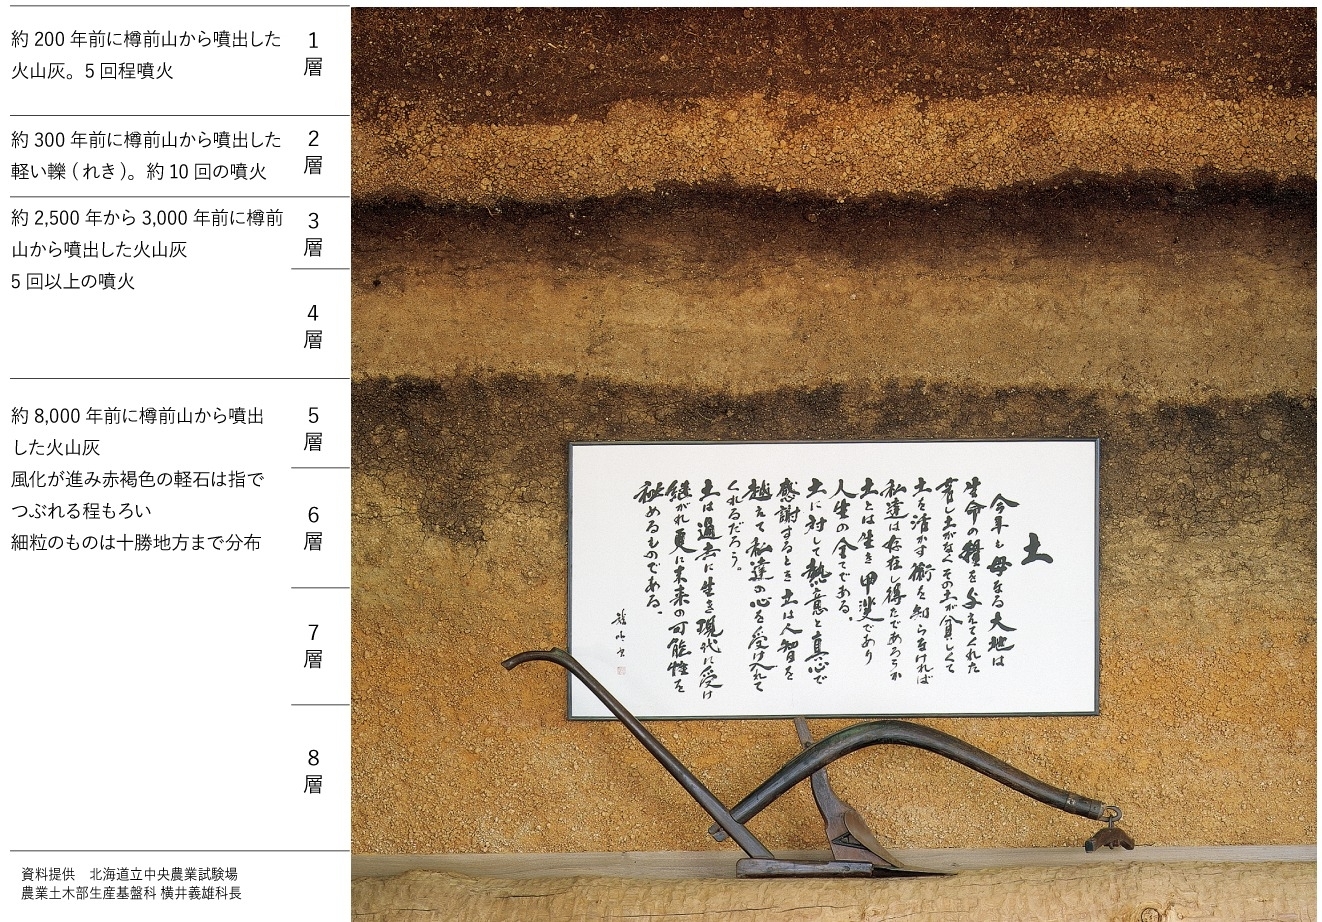 約 200 年前に樽前山から噴出した
火山灰。5 回程噴火
1
層
約 300 年前に樽前山から噴出した
軽い轢(れき)。約 10 回の噴火
2
層
約 2,500 年から 3,000 年前に樽前
山から噴出した火山灰
5 回以上の噴火
3
層
4
層
約 8,000 年前に樽前山から噴出
した火山灰
風化が進み赤褐色の軽石は指で
つぶれる程もろい
細粒のものは十勝地方まで分布
5
層
6
層
7
層
8
層
資料提供　北海道立中央農業試験場
農業土木部生産基盤科 横井義雄科長
土
今年も母なる大地は
生命の糧を与えてくれた
若し土がなく その土が貧しくて
土を活かす術を知らなければ
私達は存在し得たであろうか
土とは生き甲斐であり
人生の全てである。
土に対して熱意と真心で
感謝するとき 土は人智を
越えて私達の心を受け入れて
くれるだろう。
土は過去に生き現代に受け
継がれ更に未来の可能性を
秘めるものである。